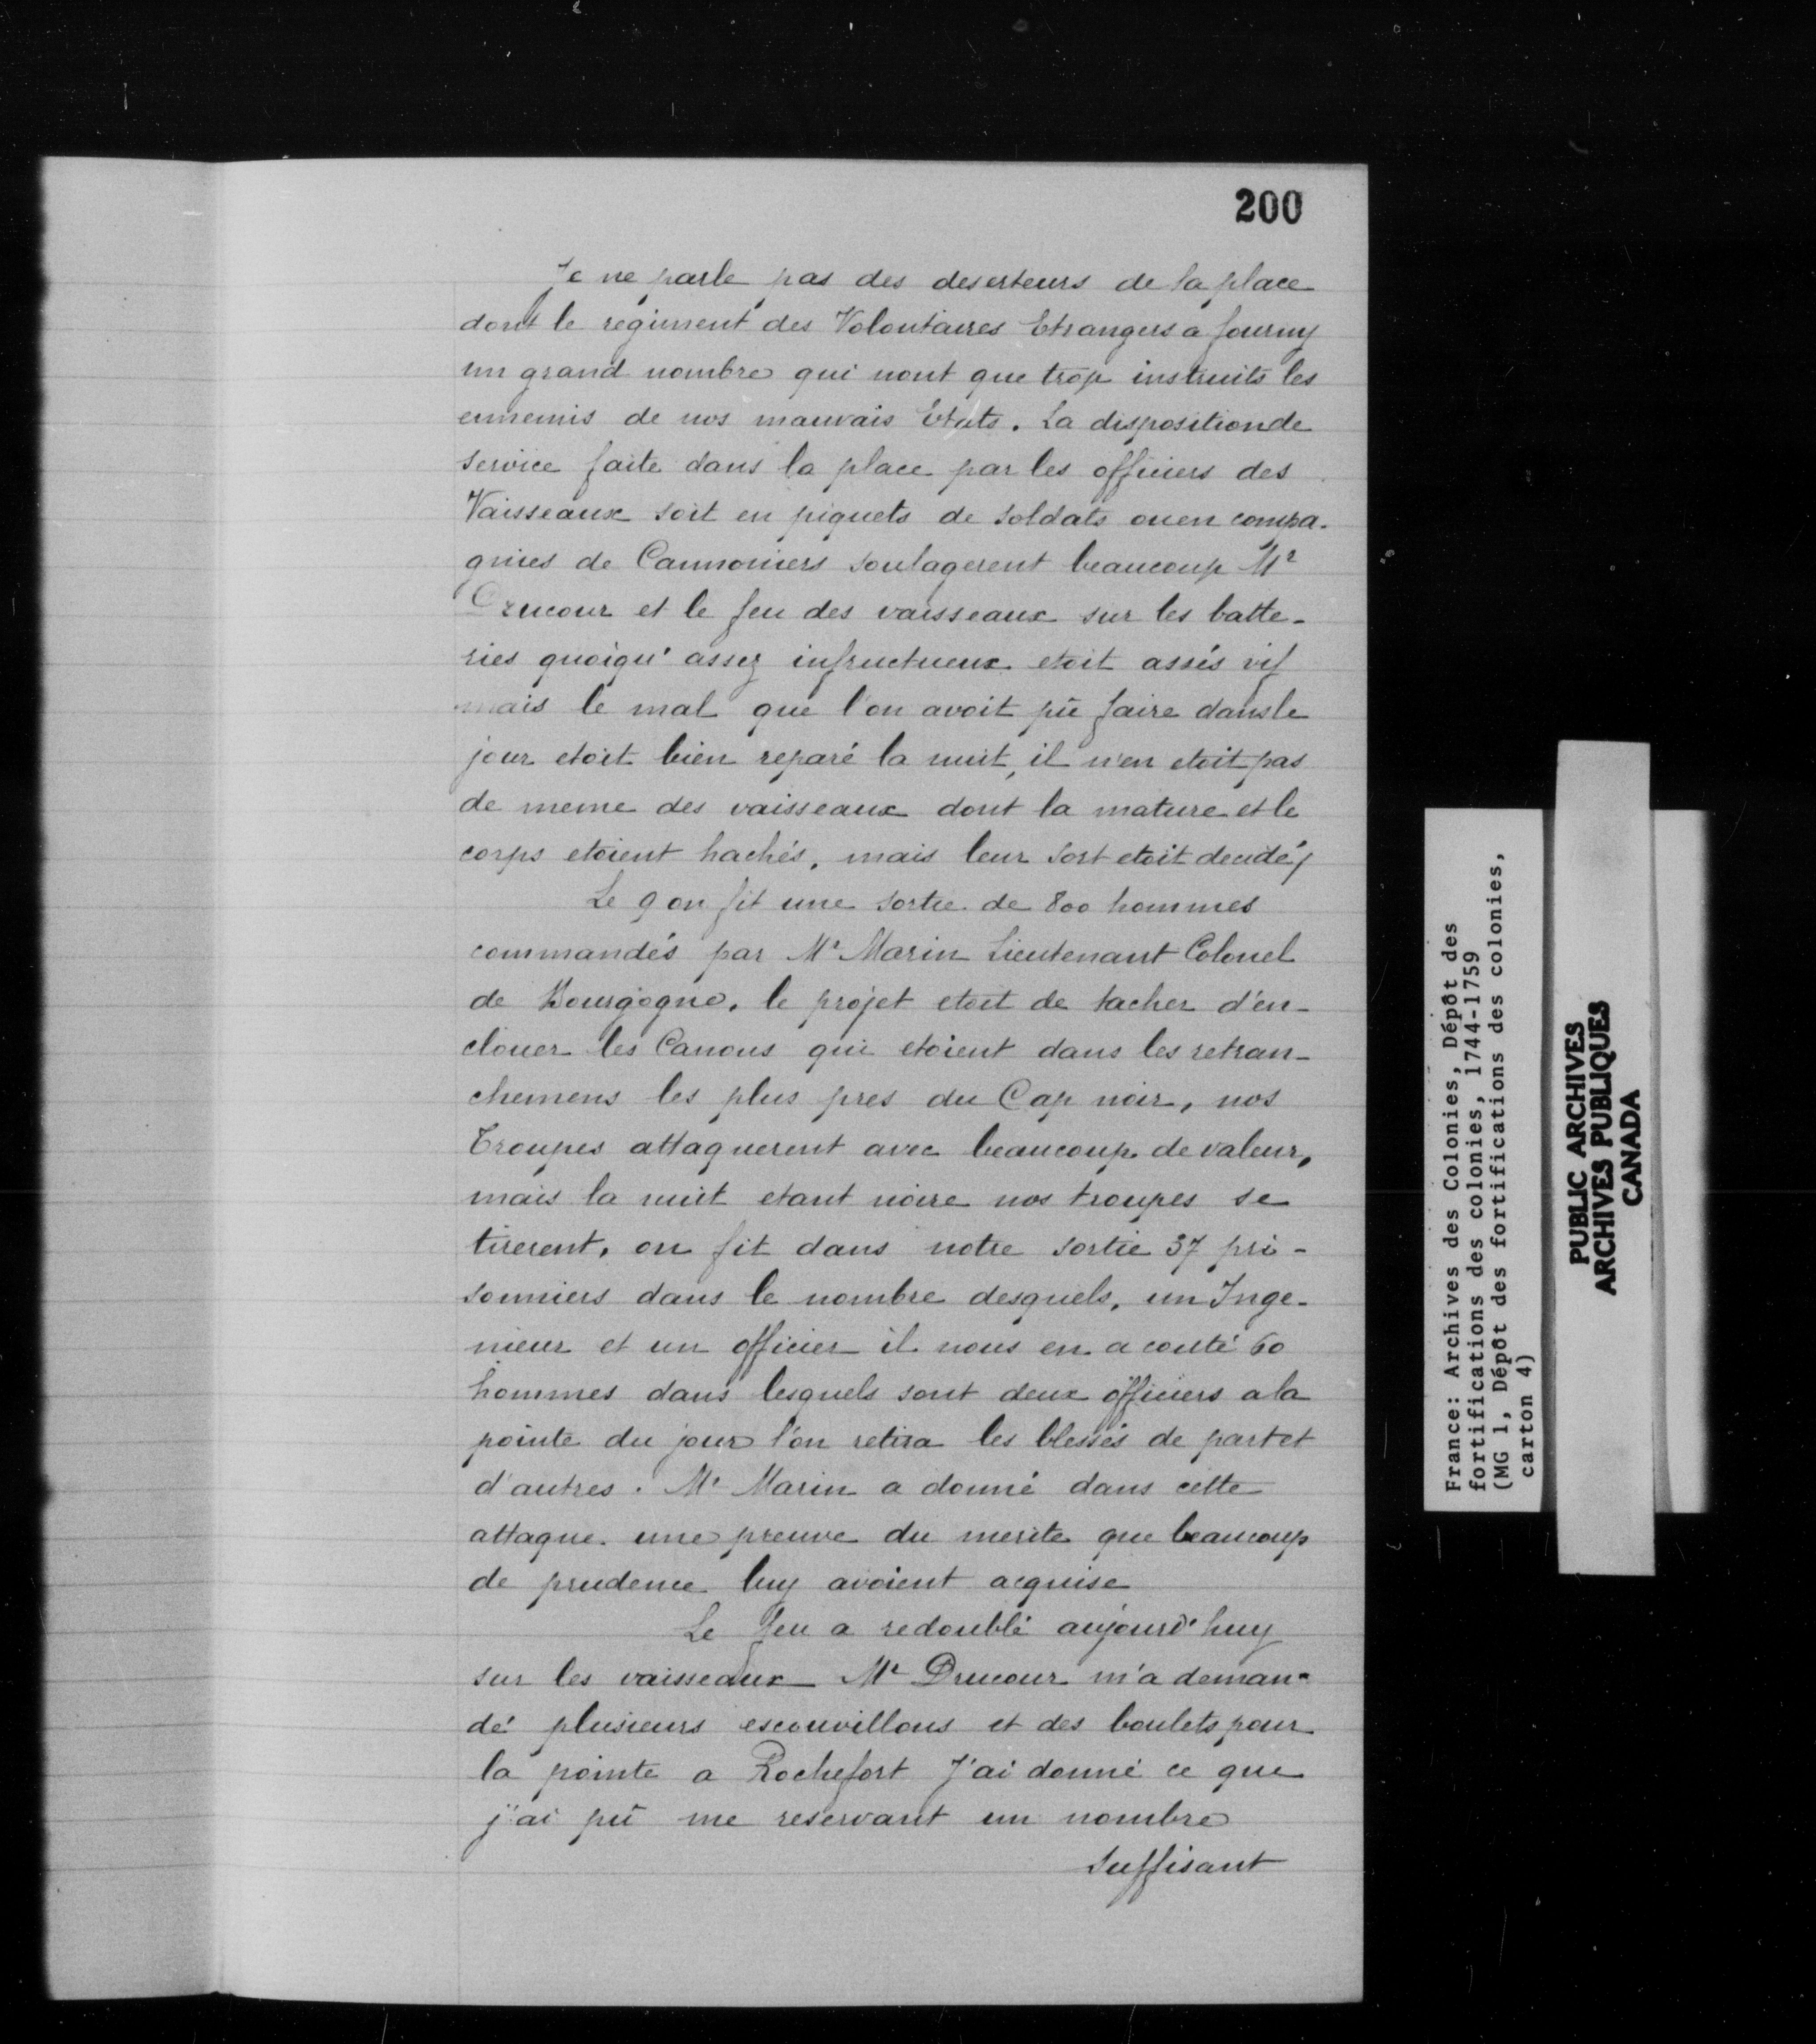 200
Je ne parle pas des deserteurs de la place
dont le regiment des Volontaires Etrangers a fourny
un grand nombre qui nont que trop instruits les
ennemis de nos mauvais Etats. La disposition de
service faite dans la place par les officiers des
Vaisseaux soit en piquets de soldats ou en compa-
gnies de Cannoniers soulagerent beaucoup Mr
Drucour et le feu des vaisseaux sur les batte-
ries quoiqu' assez infructueux etoit assés vif
mais le mal que l'on avoit pû faire dans le
jour etoit bien reparé la nuit, il n'en etoit pas
de meme des vaisseaux dont la mature et le
corps etoient hachés, mais leur sort etoit decidé,
Le 9 on fit une sortie de 800 hommes
commandés par Mr Marin Lieutenant Colonel
de Bourgogne, le projet etoit de tacher d'en-
clouer les Canons qui etoient dans les retran-
chemens les plus pres du Cap noir, nos
Troupes attaquerent avec beaucoup de valeur,
mais la nuit etant noire nos troupes se
tirerent, on fit dans notre sortie 37 pri-
sonniers dans le nombre desquels, un Inge-
nieur et un officier il nous en a couté 60
hommes dans lesquels sont deux officiers a la
pointe du jour l'on retira les blessés de part et
d'autres. Mr Marin a donné dans cette
attaque une preuve du merite que beaucoup
de prudence luy avoient acquise
Le feu a redoublé aujourd'huy
sur les vaisseaux Mr Drucour m'a deman-
dé plusieurs escouvillons et des boulets pour
la pointe a Rochefort J'ai donné ce que
j'ai pû me reservant un nombre
suffisant
France: Archives des Colonies, Dépôt des
fortifications des colonies, 1744-1759
(MG 1, Dépôt des fortifications des colonies,
carton 4)
PUBLIC ARCHIVES
ARCHIVES PUBLIQUES
CANADA